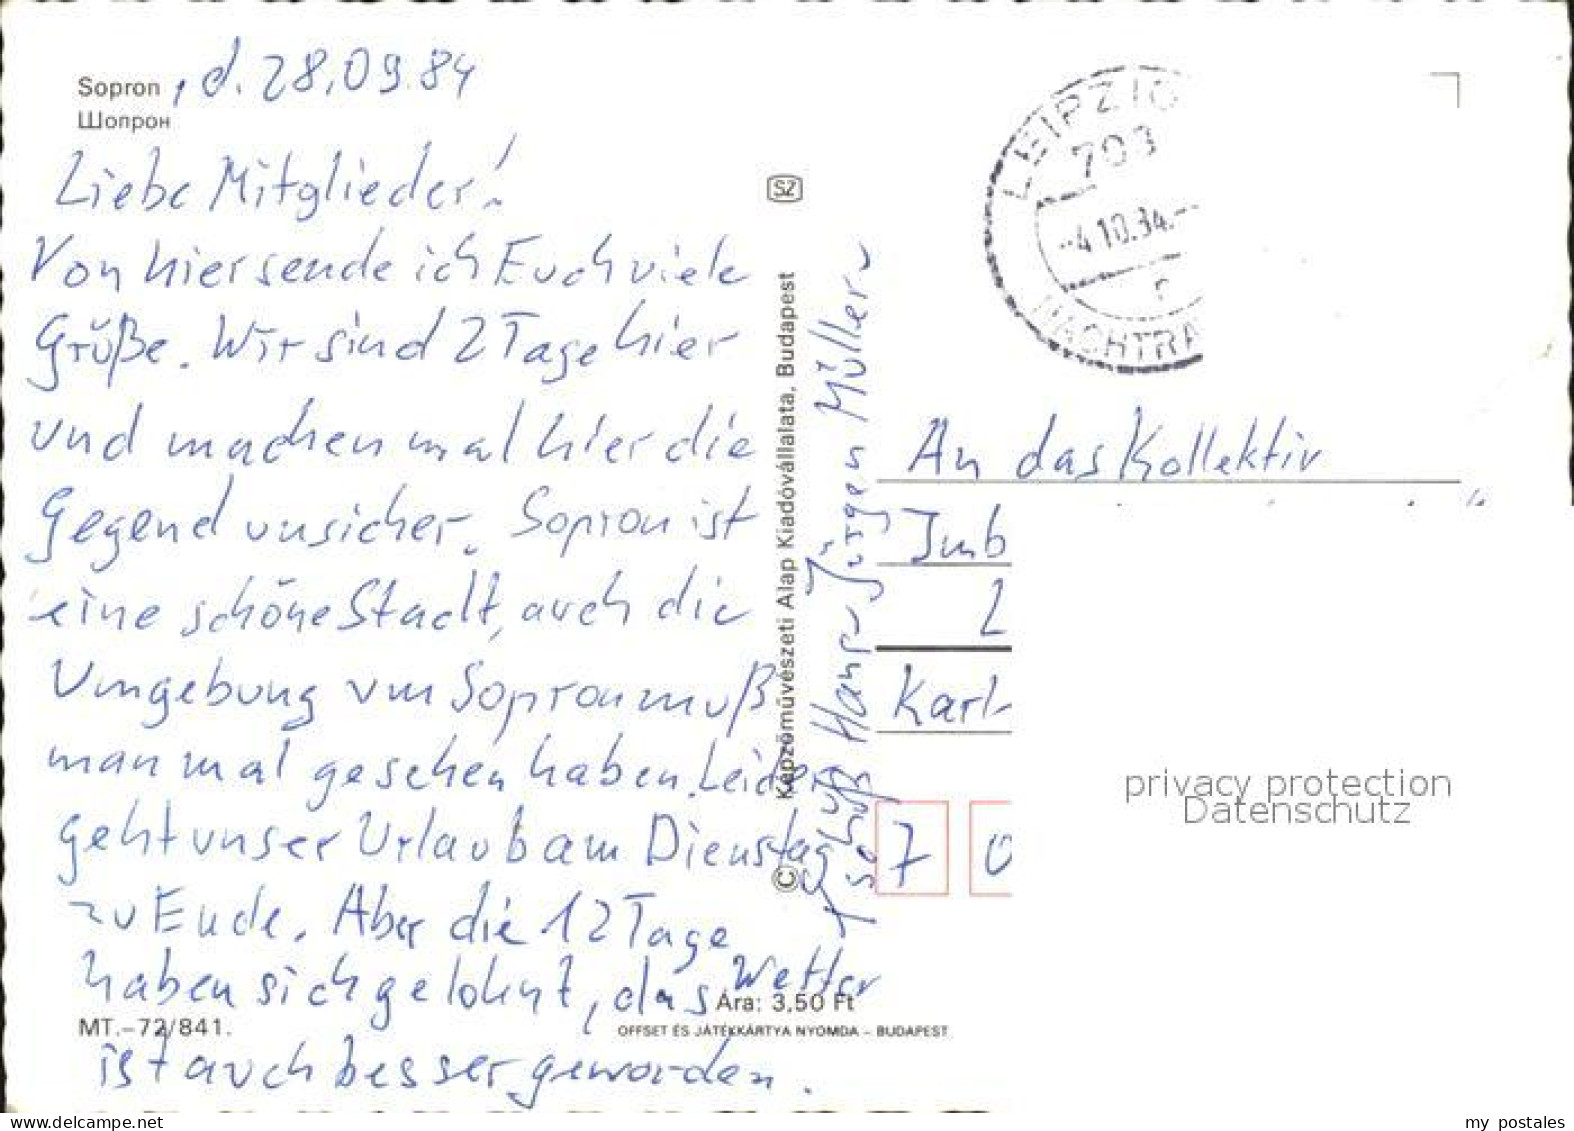 Sopron , d. 28.09.84
Шопрон
Liebe Mitglieder!
Von hier sende ich Euch viele
Grüße. Wir sind 2 Tage hier
und machen mal hier die
Gegend unsicher. Sopron ist
eine schöne Stadt, auch die
Umgebung von Sopron muß
man mal gesehen haben. Leider
geht unser Urlaub am Dienstag
zu Ende. Aber die 12 Tage
haben sich gelohnt, das Wetter
ist auch besser geworden.
MT.–72/841.
Ára: 3,50 Ft
OFFSET ÉS JÁTÉKKÁRTYA NYOMDA – BUDAPEST
SZ
© Képzőművészeti Alap Kiadóvállalata, Budapest
Hans-Jürgen Müller
LEIPZIG
703
-4.10.84.-
NACHTRA
An das Kollektiv
Imb
L
Karl-
7 0
privacy protection
Datenschutz
delcampe.net
my postales